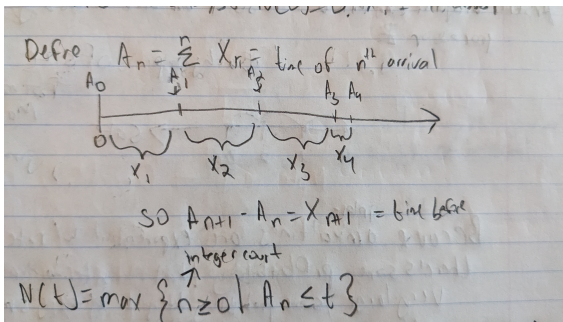 Define: Aₙ = Σⁿ Xₙ = time of nᵗʰ arrival
A₀ A₁ A₂ A₃ A₄
0
X₁ X₂ X₃ X₄
SO Aₙ₊₁ - Aₙ = Xₙ₊₁ = time before
integer count
N(t) = max {n≥0 | Aₙ ≤ t}